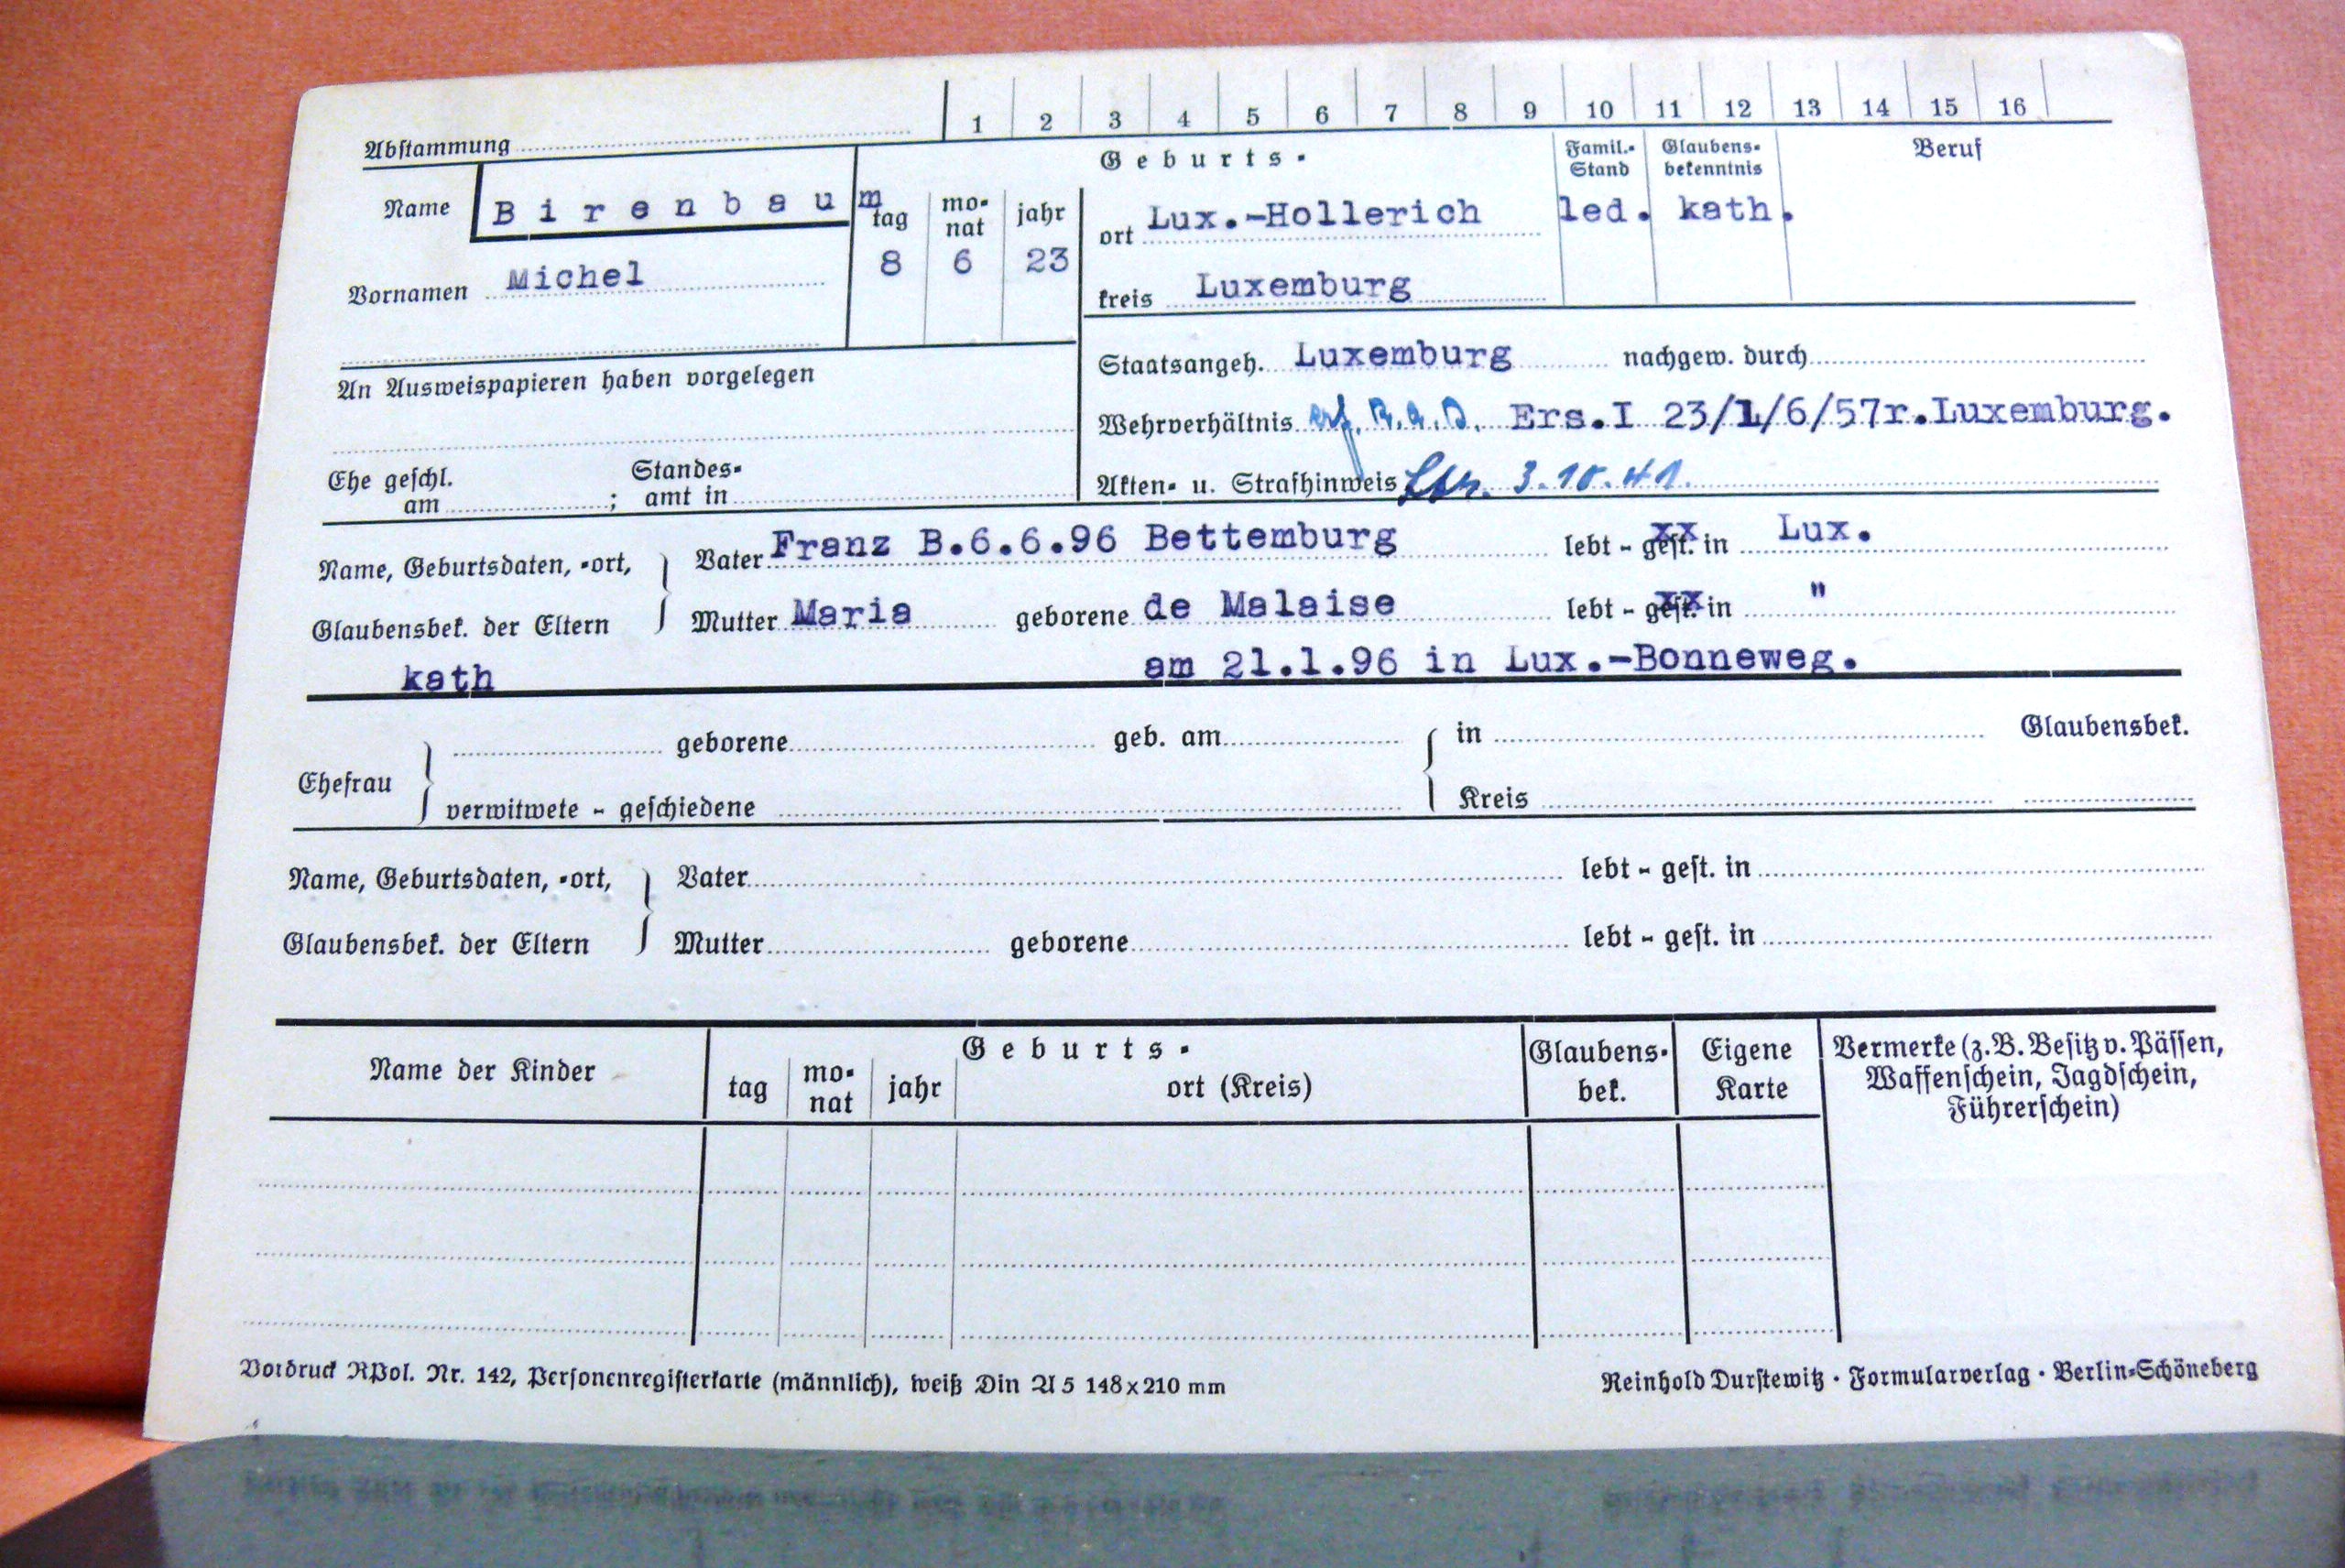 1 2 3 4 5 6 7 8 9 10 11 12 13 14 15 16
Abstammung
Name Birenbaum
Vornamen Michel
Geburts-
tag monat jahr
8 6 23
ort Lux.-Hollerich
kreis Luxemburg
Famil.-Stand led.
Glaubensbekenntnis kath.
Beruf
An Ausweispapieren haben vorgelegen
Staatsangeh. Luxemburg nachgew. durch
Wehrverhältnis erf. R.A.D. Ers.I 23/1/6/57r.Luxemburg.
Ehe geschl. am ; Standesamt in
Akten- u. Strafhinweis 3.10.41.
Name, Geburtsdaten, -ort, Vater Franz B.6.6.96 Bettemburg lebt - gest. in Lux.
Glaubensbek. der Eltern Mutter Maria geborene de Malaise lebt - gest. in "
kath am 21.1.96 in Lux.-Bonneweg.
Ehefrau geborene geb. am in Glaubensbek.
verwitwete - geschiedene Kreis
Name, Geburtsdaten, -ort, Vater lebt - gest. in
Glaubensbek. der Eltern Mutter geborene lebt - gest. in
Name der Kinder
Geburts-
tag monat jahr ort (Kreis)
Glaubens-
bek.
Eigene
Karte
Vermerke (z.B. Besitz v. Pässen,
Waffenschein, Jagdschein,
Führerschein)
Vordruck RPol. Nr. 142, Personenregisterkarte (männlich), weiß Din A 5 148x210 mm
Reinhold Durstewitz · Formularverlag · Berlin-Schöneberg